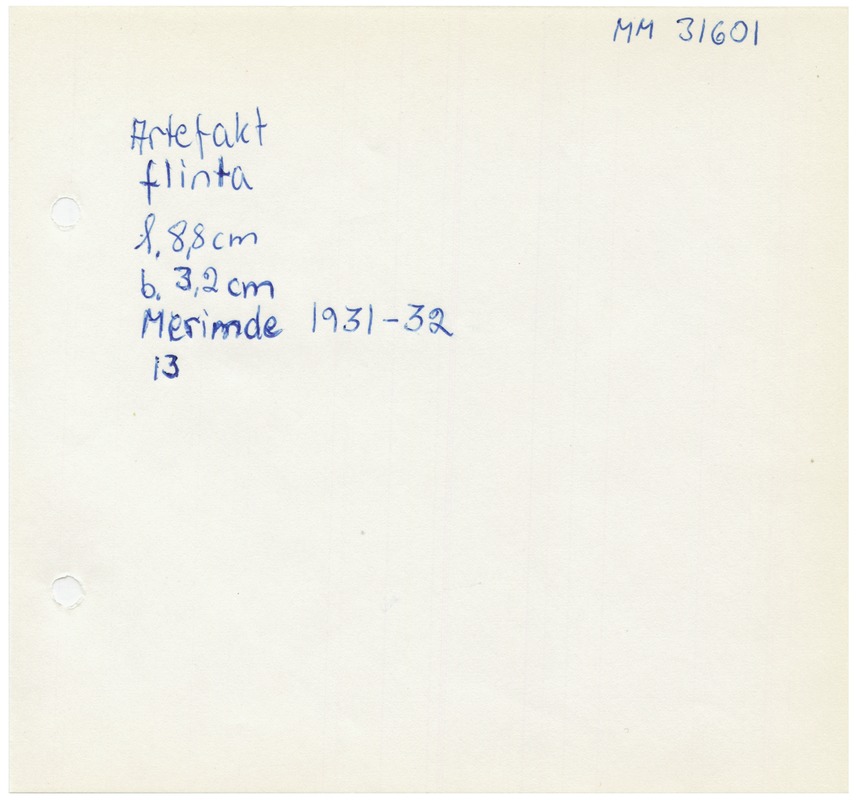 MM 31601
Artefakt
flinta
l. 8,8 cm
b. 3,2 cm
Merimde 1931-32
13